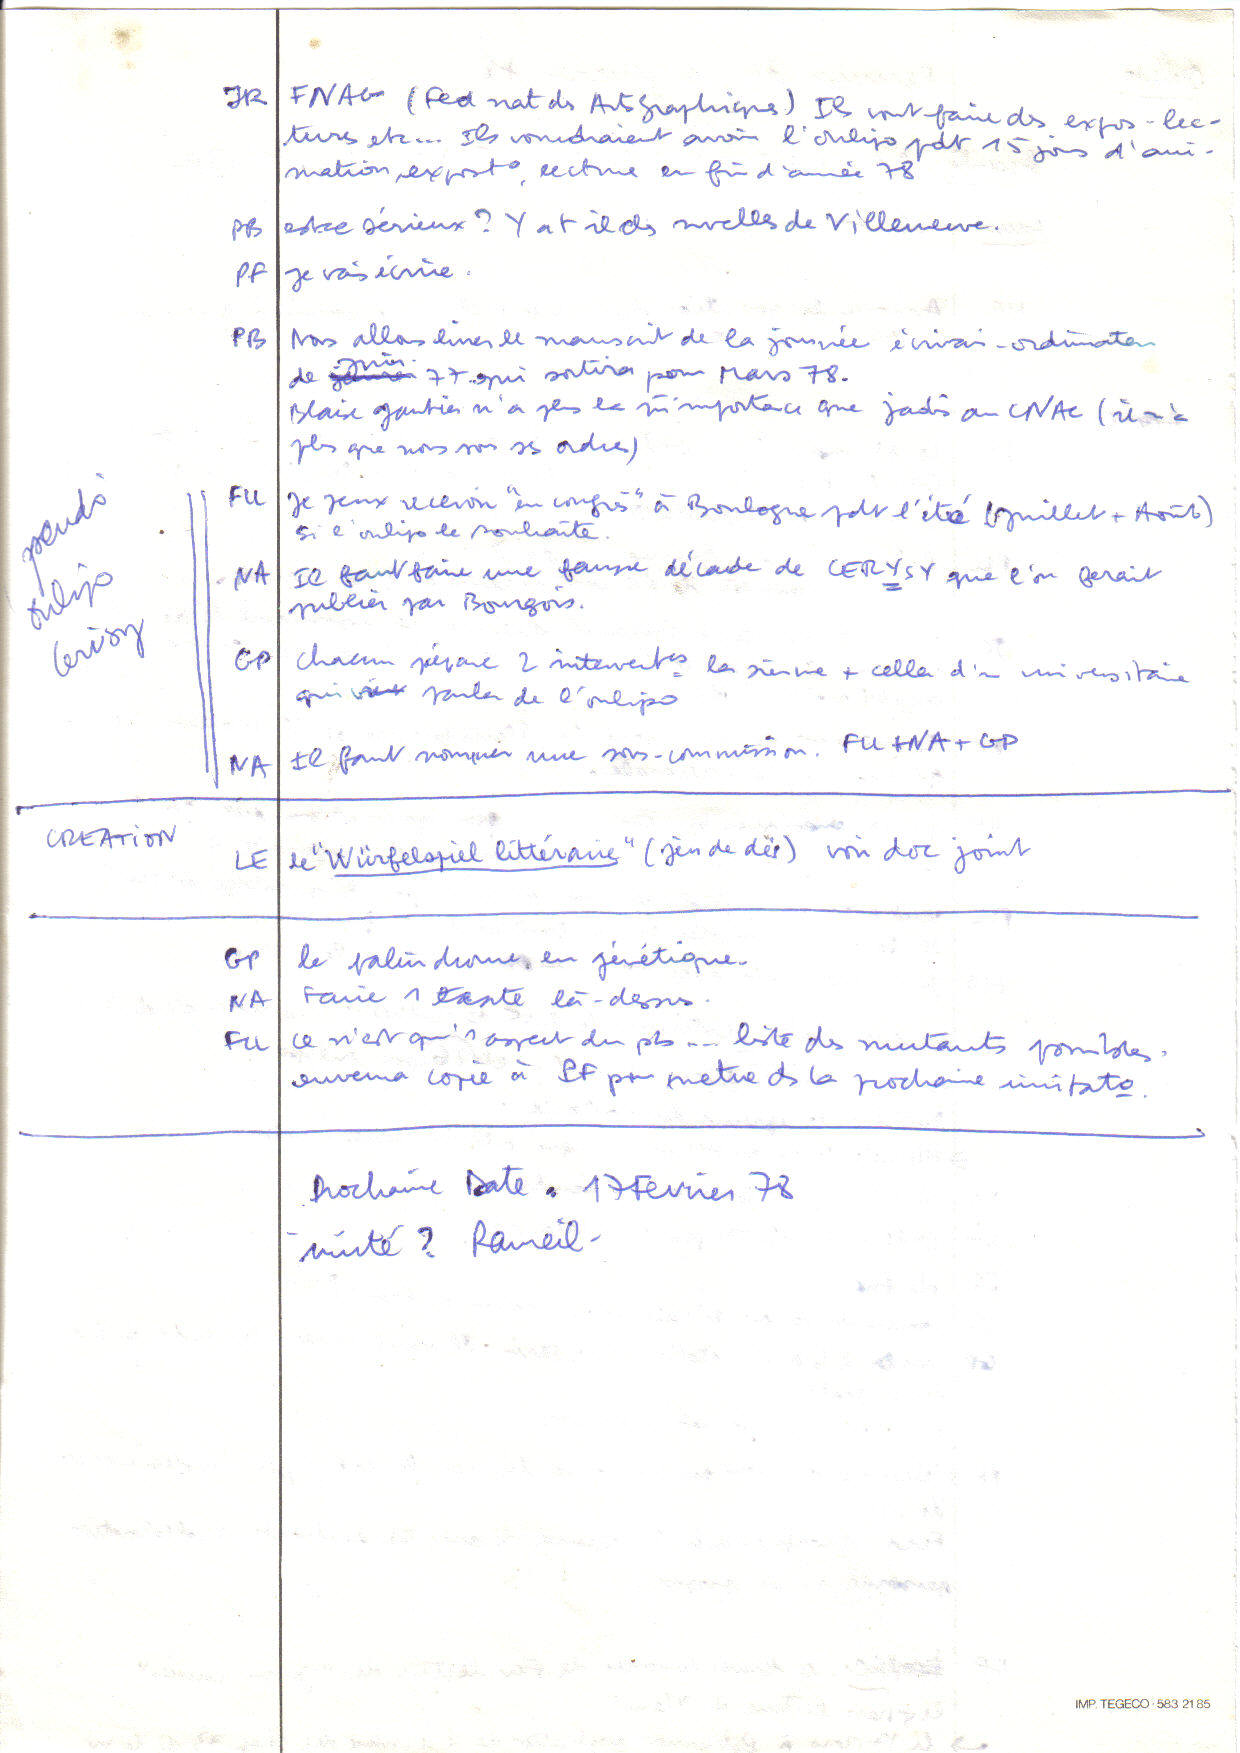 JR FNAG (Fed nat des Arts Graphiques) Ils vont faire des expos-lec-
tures etc... Ils voudraient avoir l'oulipo pdt 15 jours d'ani-
mation, expost°, lecture en fin d'année 78
PB est-ce sérieux? Y a t il des nvelles de Villeneuve.
PF je vais écrire.
PB Nous allons livrer le manuscrit de la journée écrivain-ordinateur
de juin 77 qui sortira pour Mars 78.
Blaise Gautier n'a plus la m̂ importance que jadis au CNAC (il n'a
plus que nous sous ses ordres)
pseudo
oulipo
Cerisy
FU Je peux recevoir "en congrès" à Boulogne pdt l'été (juillet + Août)
si l'oulipo le souhaite.
NA Il faut faire une fausse décade de CERYSY que l'on ferait
publier par Bourgois.
GP chacun prépare 2 intervent°s la sienne + celle d'un universitaire
qui vient parler de l'oulipo
NA Il faut nommer une sous-commission. FU + NA + GP
CREATION
LE le "Würfelspiel littéraire" (jeu de dés) voir doc joint
GP le palindrome en génétique.
NA Faire 1 texte là-dessus.
FU ce n'est qu'1 aspect du pb... liste des mutants possibles.
enverra copie à PF pour mettre ds la prochaine invitat°.
Prochaine Date. 17 Février 78
invité? Rameil-
IMP. TEGECO · 583 21 85